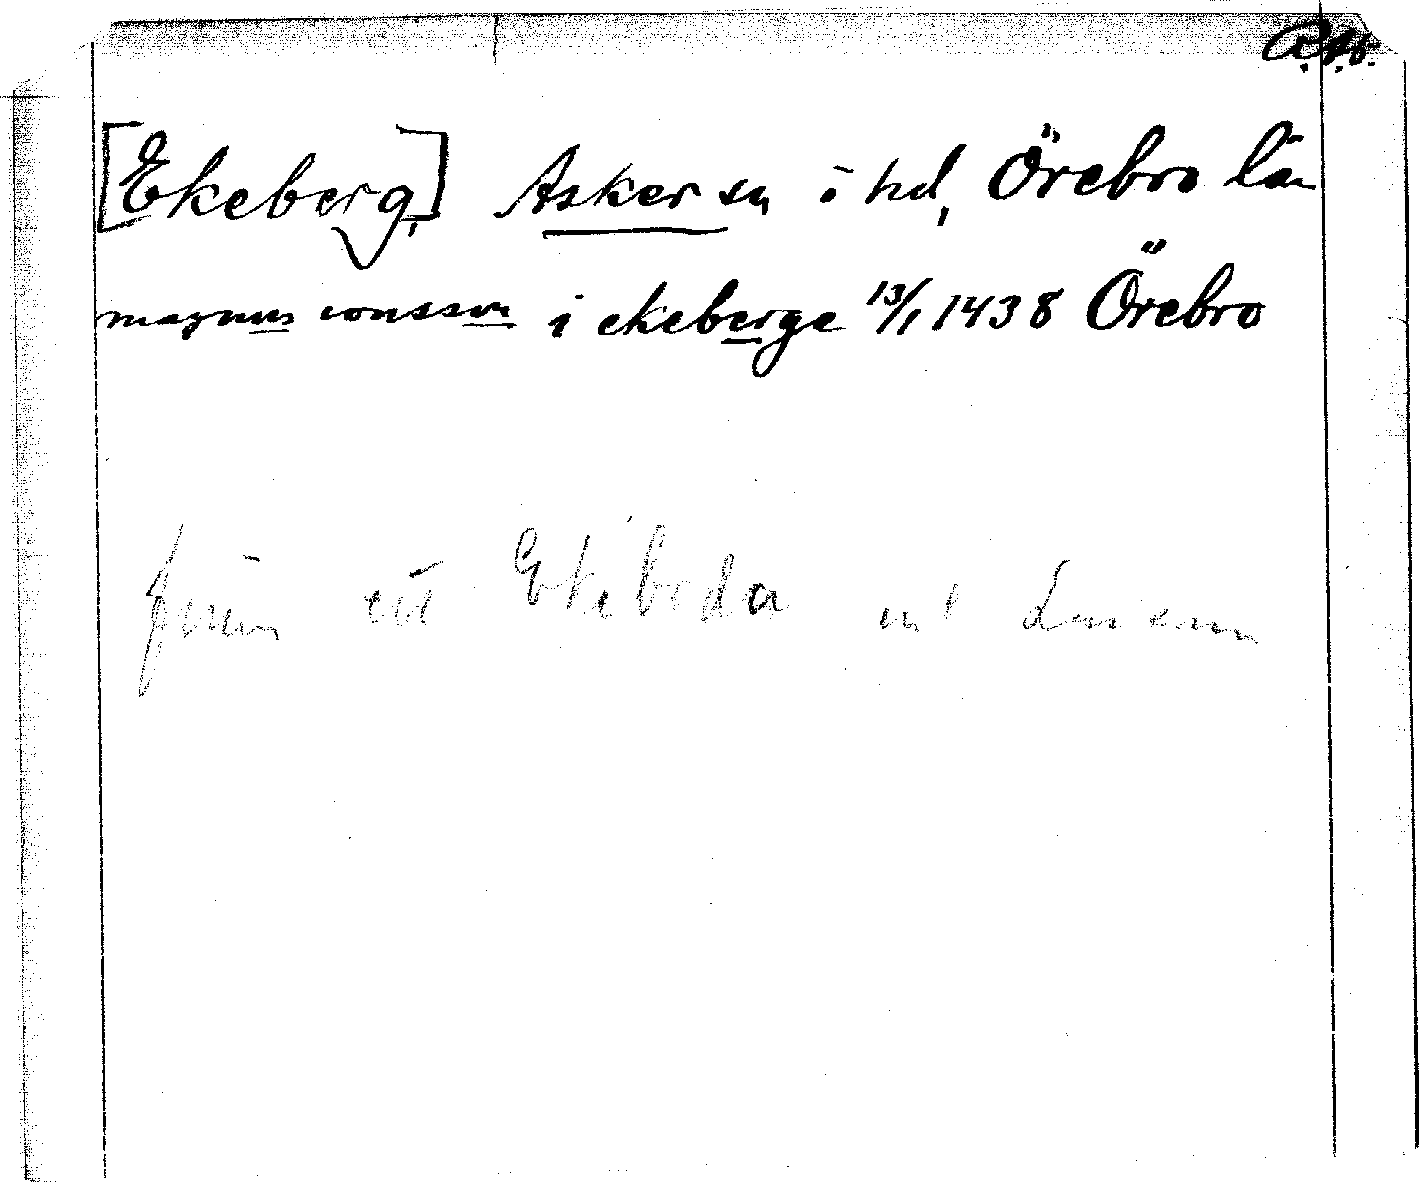 R.A.b.
[Ekeberg], Asker sn i hd, Örebro län
magnus ionsson i ekeberge 13/1 1438 Örebro
finns ett Ekeboda